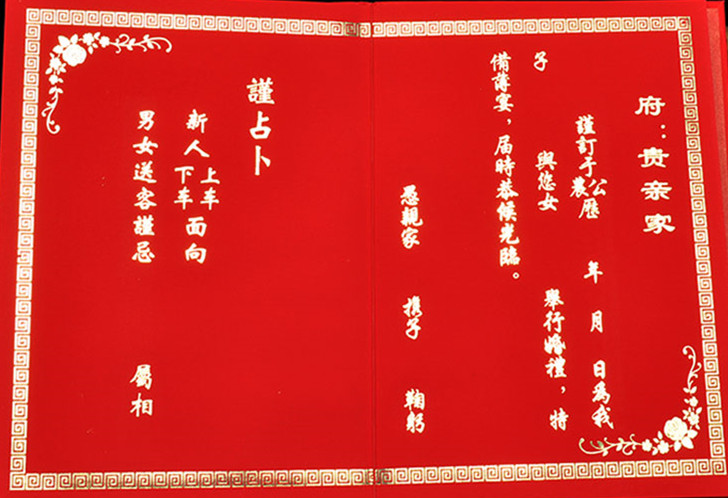 府：贵亲家
謹訂于公歷農 年 月 日為我
子 與您女 舉行婚禮，特
備薄宴，届時恭候光臨。
愚親家 携子 鞠躬
謹占卜
新人上車下車面向
男女送客謹忌 屬相